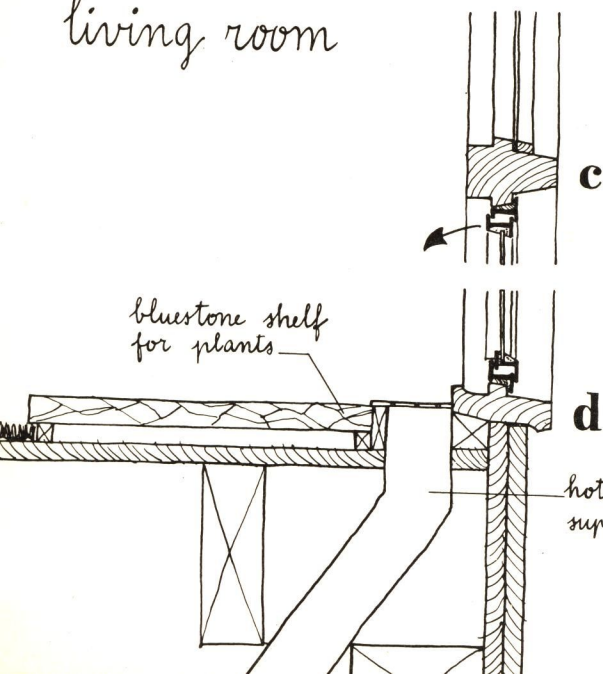 living room
c
bluestone shelf
for plants
d
hot